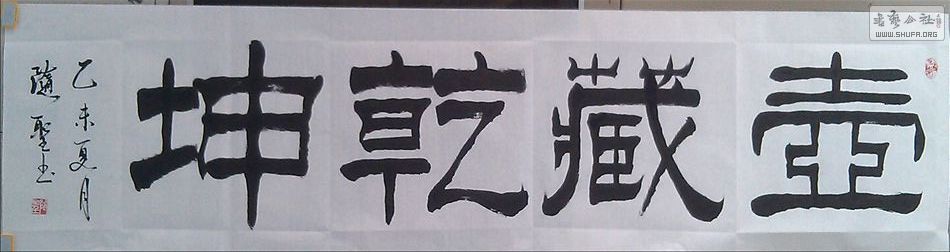 壺藏乾坤
乙未夏月
隨聖书
书艺公社
www.SHUFA.ORG